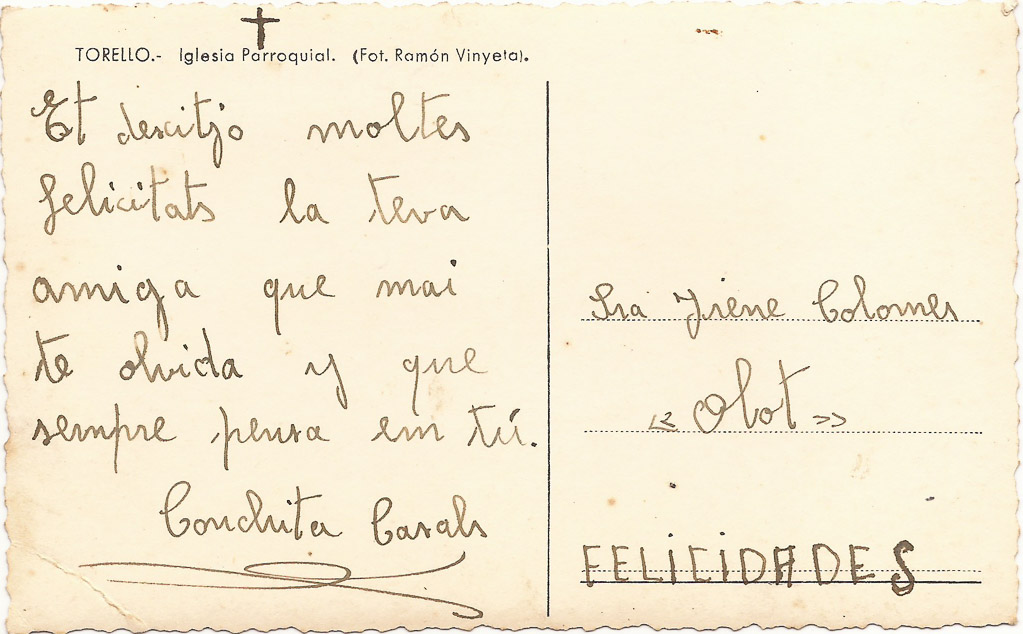 TORELLO.- Iglesia Parroquial. (Fot. Ramón Vinyeta).
Et descitjo moltes
felicitats la teva
amiga que mai
te olvida y que
sempre pensa em tú.
Conchita Casals
Sra Irene Colomes
« Olot »
FELICIDADES